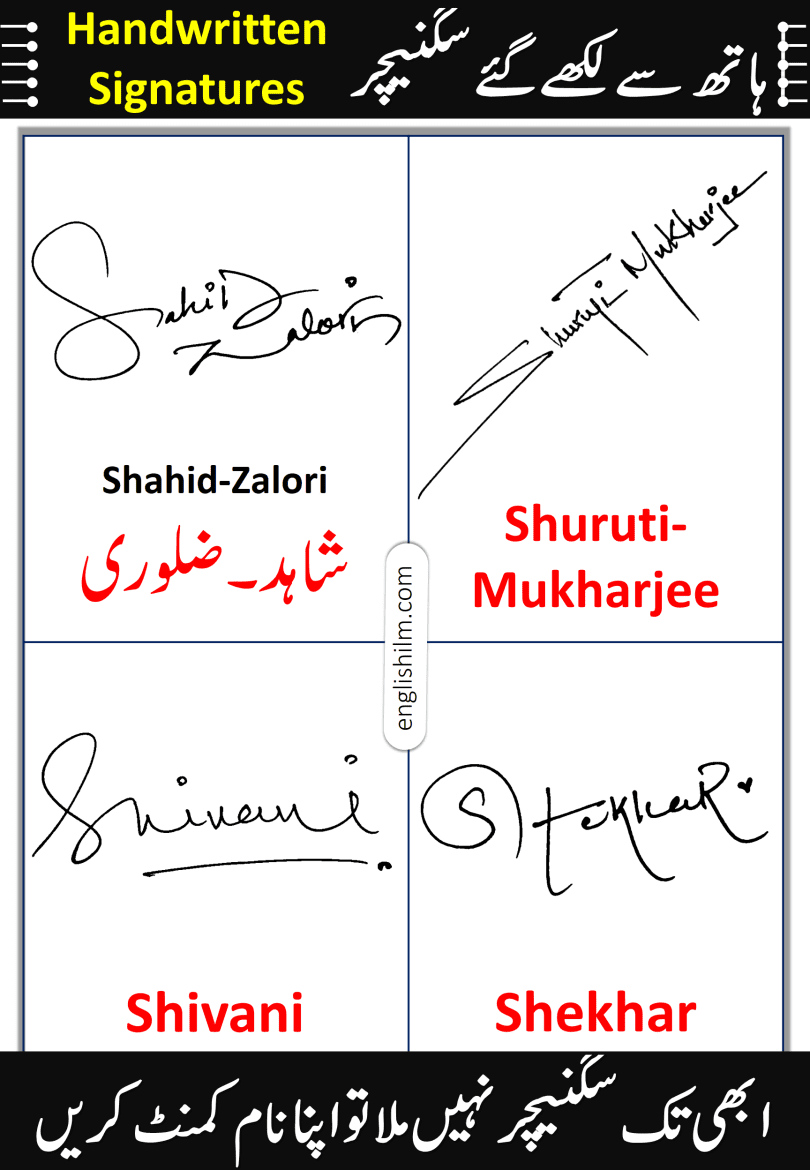 Handwritten
Signatures
ہاتھ سے لکھے گئے سگنیچر
Sahil Zalori
Shahid-Zalori
شاہد۔ضلوری
Shuruti Mukharjee
Shuruti-
Mukharjee
englishilm.com
Shivani
Shivani
Shekhar
Shekhar
ابھی تک سگنیچر نہیں ملا تو اپنا نام کمنٹ کریں